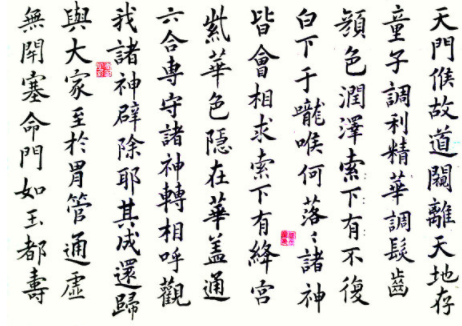 天門候故道闕離天地存
童子調利精華調髮齒
顏色潤澤索下有不復
白下于嚨喉何落〻諸神
皆會相求索下有絳宮
紫華色隱在華蓋通
六合專守諸神轉相呼觀
我諸神辟除耶其成還歸
與大家至於胃管通虛
無閉塞命門如玉都壽